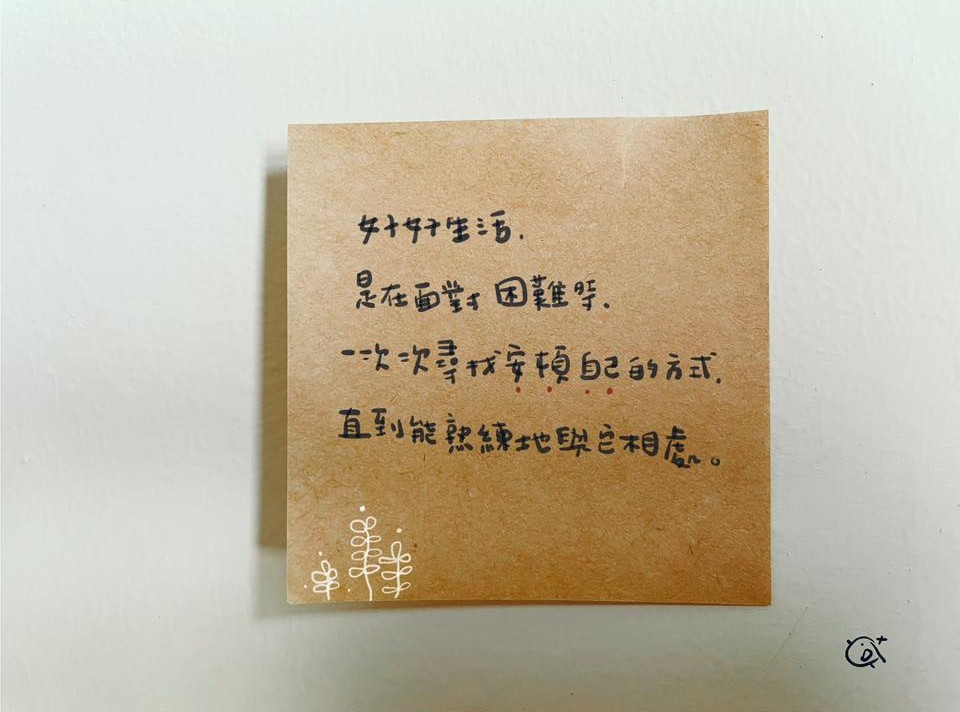 好好生活.
是在面對困難時.
一次次尋找安頓自己的方式.
直到能熟練地與它相處。